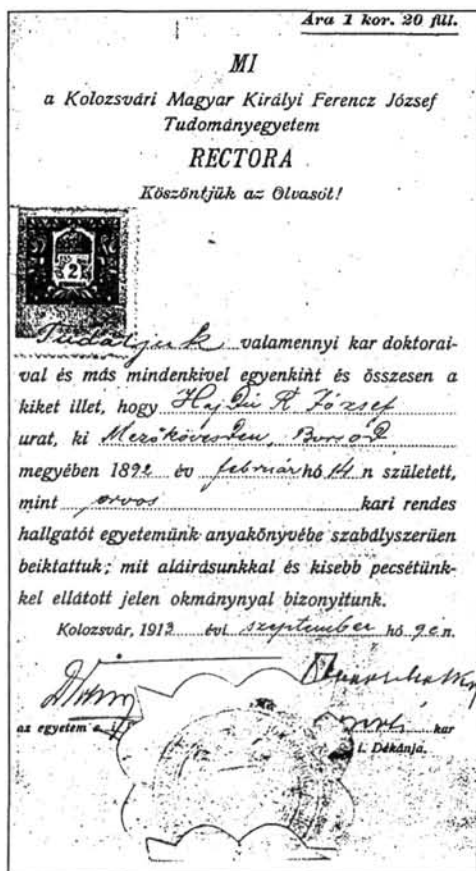 Ára 1 kor. 20 fill.
MI
a Kolozsvári Magyar Királyi Ferencz József
Tudományegyetem
RECTORA
Köszöntjük az Olvasót!
2
Tudatjuk valamennyi kar doktorai-
val és más mindenkivel egyenkint és összesen a
kiket illet, hogy Hejdü R József
urat, ki Mezőkövesden, Borsod
megyében 1892 év február hó 14 n született,
mint orvos kari rendes
hallgatót egyetemünk anyakönyvébe szabályszerüen
beiktattuk; mit aláirásunkkal és kisebb pecsétünk-
kel ellátott jelen okmánynyal bizonyitunk.
Kolozsvár, 1913 évi szeptember hó 9én.
az egyetem
kar
i. Dékánja.